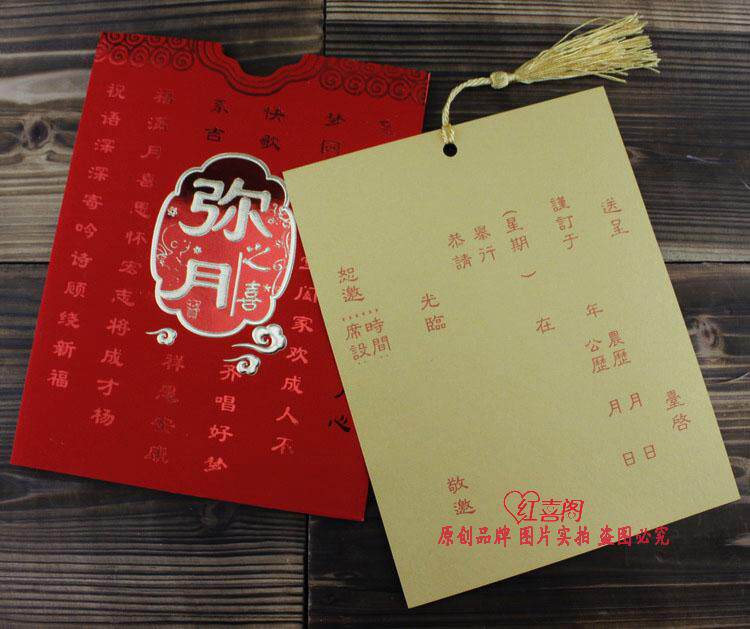 弥月
之喜
快歌
系吉
福满月喜思怀宏志将成才杨
祝语深深寄吟诗顾绕新福
家欢成人不
齐唱好梦
送呈
臺啓
謹訂于
年
農歷
公歷
月
日
月
日
(星期 )
在
舉行
恭請
光臨
敬邀
恕邀
時間
席設
红喜阁
原创品牌 图片实拍 盗图必究